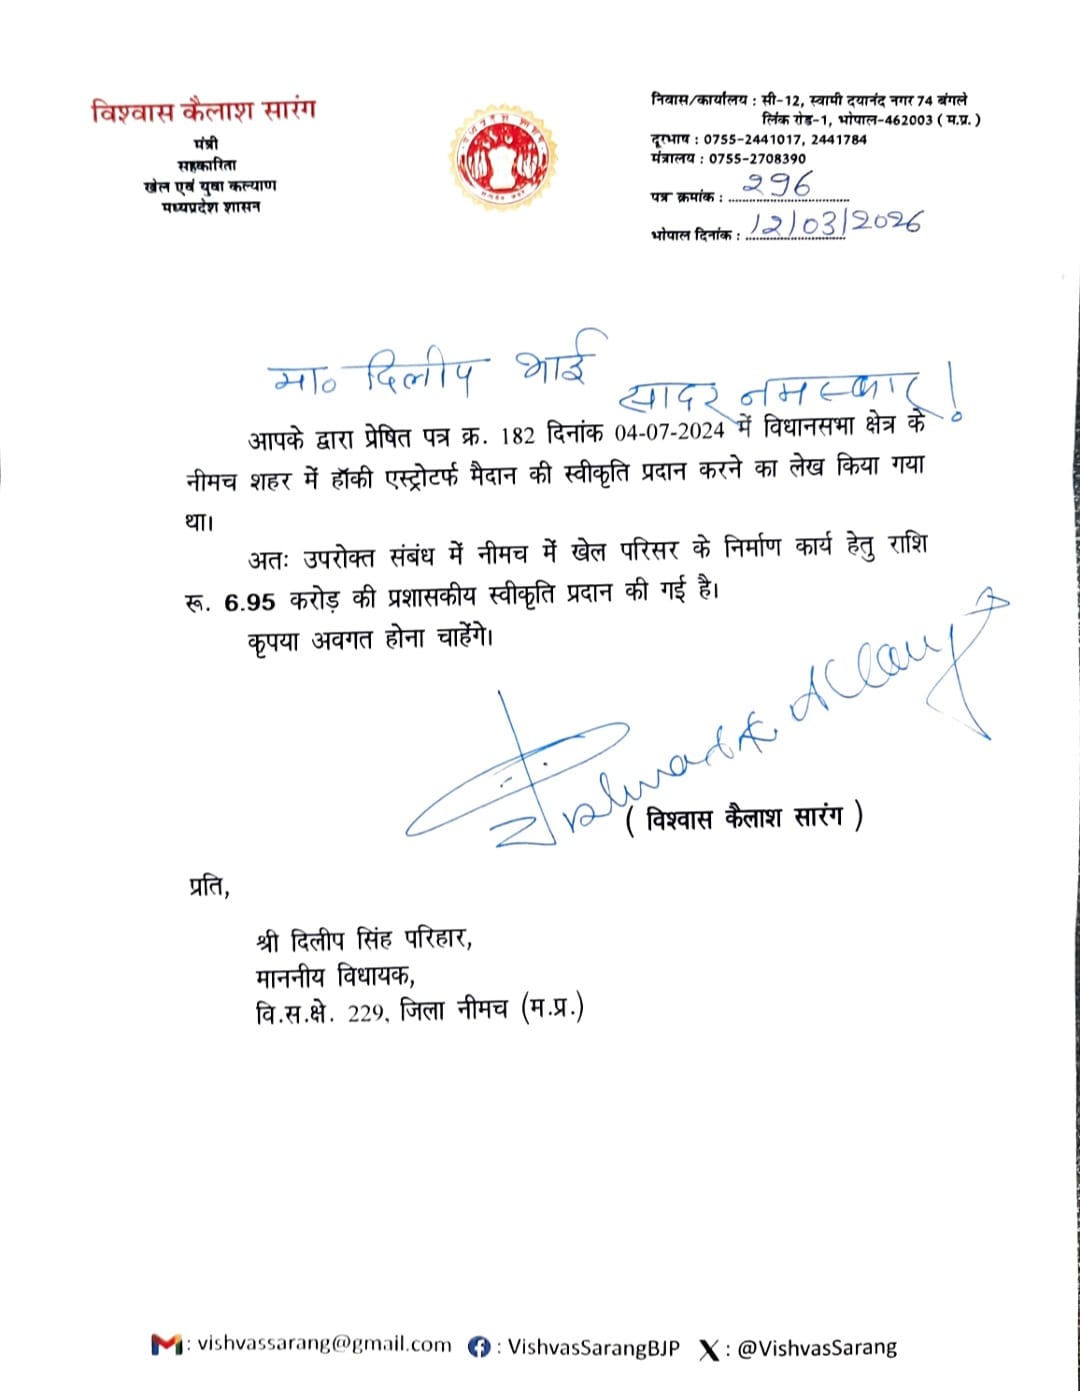 विश्वास कैलाश सारंग
मंत्री
सहकारिता
खेल एवं युवा कल्याण
मध्यप्रदेश शासन
निवास/कार्यालय : सी-12, स्वामी दयानंद नगर 74 बंगले
लिंक रोड-1, भोपाल-462003 ( म.प्र. )
दूरभाष : 0755-2441017, 2441784
मंत्रालय : 0755-2708390
पत्र क्रमांक : 296
भोपाल दिनांक : 12/03/2026
मा० दिलीप भाई
सादर नमस्कार!
आपके द्वारा प्रेषित पत्र क्र. 182 दिनांक 04-07-2024 में विधानसभा क्षेत्र के
नीमच शहर में हॉकी एस्ट्रोटर्फ मैदान की स्वीकृति प्रदान करने का लेख किया गया
था।
अतः उपरोक्त संबंध में नीमच में खेल परिसर के निर्माण कार्य हेतु राशि
रू. 6.95 करोड़ की प्रशासकीय स्वीकृति प्रदान की गई है।
कृपया अवगत होना चाहेंगे।
( विश्वास कैलाश सारंग )
प्रति,
श्री दिलीप सिंह परिहार,
माननीय विधायक,
वि.स.क्षे. 229, जिला नीमच (म.प्र.)
: vishvassarang@gmail.com : VishvasSarangBJP X : @VishvasSarang